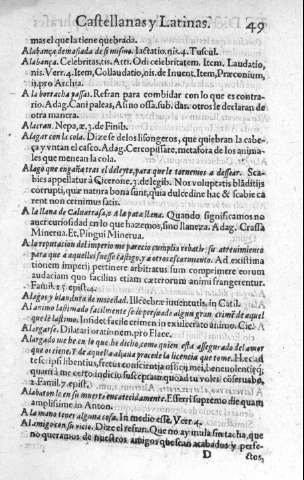 Castellanas y Latinas. 49
mas el que la tiene quebrada.
Alabança demasiada de si mismo. Iactatio, nis. 4. Tuscul.
Alabança. Celebritas, tis. Attri. Odi celebritatem. Item. Laudatio,
nis. Verr. 4. Item, Collaudatio, nis. de Inuent. Item, Præconium,
ij. pro Archia.
A la borracha passas. Refran para combidar con lo que es contra-
rio. Adag. Cani paleas, Alino ossa. sub. das. otros le declaran de
otra manera.
Alacran. Nepa, æ. 3. de Finib.
Alagar con la cola. Dize se de los lisongeros, que quiebran la cabe-
ça y vntan el casco. Adag. Cercopissare, metafora de los anima-
les que menean la cola.
Alago que engañatras el deleyte, para que le tornemos a dessear. Sca-
bies appellatur à Cicerone, 3. de legib. Nos voluptatis blāditijs
corrupti, quæ natura bona sunt, quia dulcedine hac & scabie ca
rent non cernimus satis.
A la llana de Caluarrasa, o a la pata llana. Quando significamos no
auer curiosidad en lo que hazemos, sino llaneza. Adag. Crassa
Minerua. Et, Pingui Minerua.
A la reputacion del imperio me parecio cumplia rebatir su atreuimiento
para que a aquellos fuesse castigo, y a otros escarmento. Ad existima
tionem imperij pertinere arbitratus sum comprimere eorum
audaciam quo facilius etiam cæterorum animi frangerentur.
Famil. 15. epist. 4.
Alagos y blanduras de mocedad. Illecebræ iuuentutis, in Catil.
Al animo lastimado facilmente se le persuade algun gran crimē de aquel
que le lastimo. Insidet facile crimen in exulcerato animo. Cic.
Alargarse. Dilatari orationem, pro Flacc.
Alargado me he en lo que he dicho, como quien esta assegurado del amor
que os tiene. Y de aquella aljaua procede la licencia que tome. Hæc ad
te scripsi libentius, fretus conscientia officij mei, beneuolentięq;
quam à me certo iudicio susceptam quoad tu voles conseruabo,
2. Famil. 7. epist.
Alabaron le en su muerte encarecidamente. Efferri supremo die quam
amplissime. in Anton.
A la mano tener alguna cosa. In medio esse. Verr. 4.
Al amigo con su vicio. Dize el refran. Que no ay mula sin tacha, que
no queramos de nuestros amigos que sean acabados y perfe-
D ctos,